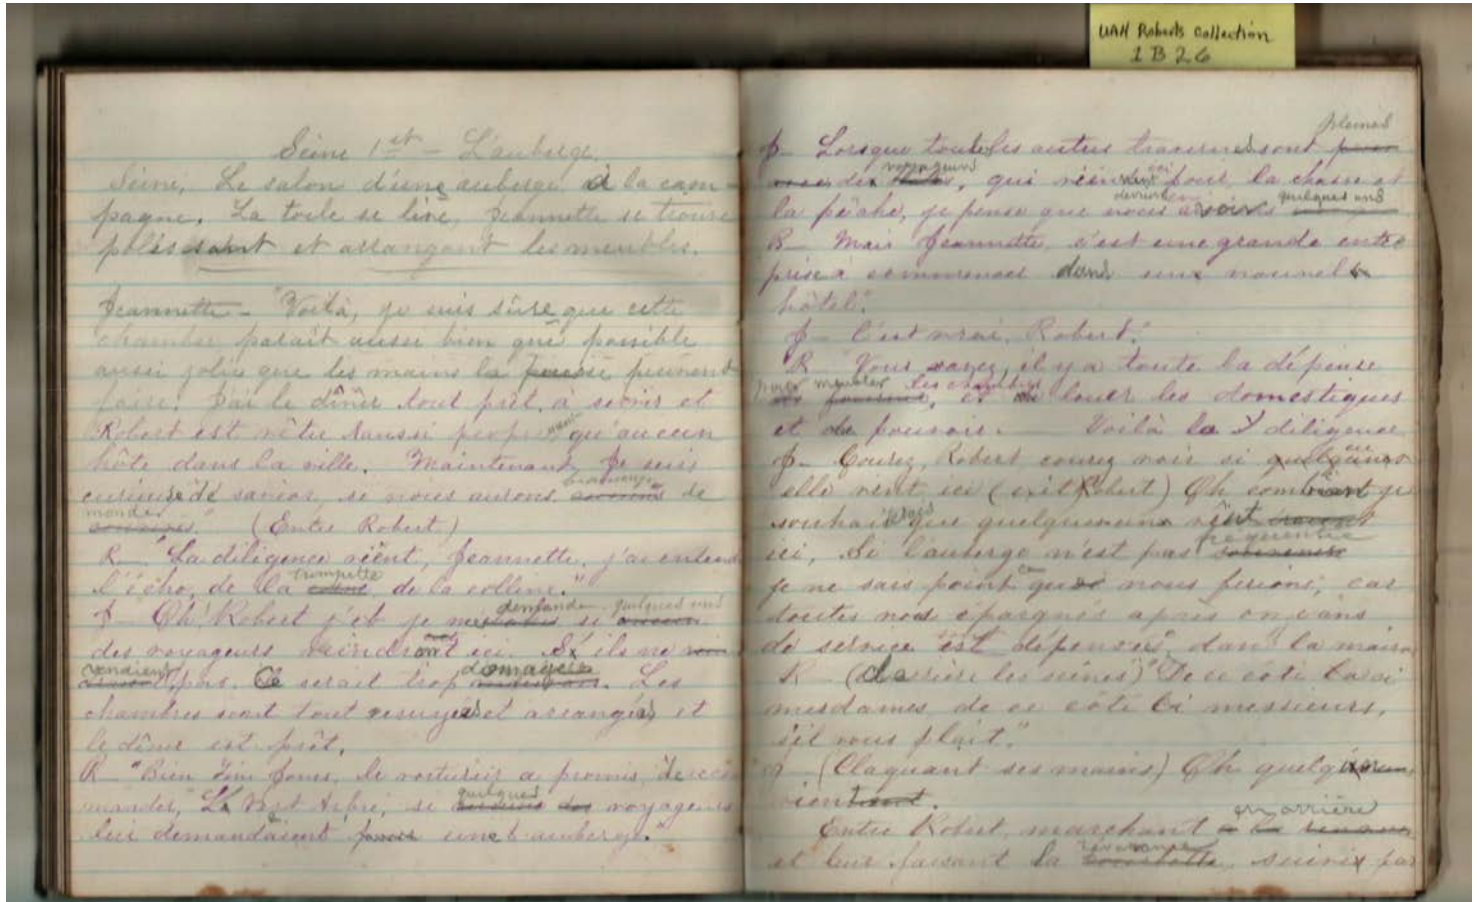 UAH Roberts Collection
1 B 26
Scène 1er - L'auberge.
Scène, Le salon d'une auberge à la cam-
pagne. La toile se live, Jeannette se trouve
polissant et arrangant les meubles.
Jeannette - "Voilà, je suis sûre que cette
chambre parait aussi bien que possible
aussi jolie que les mains la peuvent
faire. J'ai le dîner tout prêt, à servir et
Robert est vêtu aussi propre qu'aucun
hôte dans la ville. Maintenant, je suis
curieuse de savoir, se nous aurons beaucoup de
monde." (Entre Robert)
R - "La diligence vient, Jeannette, j'ai entend
l'écho, de la trompette de la colline."
J - Oh! Robert je demande si quelques uns
des voyageurs viendront ici. S'ils ne
viendrent pas. Ce serait trop domage. Les
chambres sont tout essuyés et arrangés et
le dîner est prêt.
R - "Bien Jim Jones, le voiturier a promis de recom
mander, "Le Vert Arbre, se quelques voyageurs
lui demandaient une auberge."
pleines
J - Lorsque toutes les autres tavernes sont
des voyageurs, qui viennent ici pour la chasse et
la pêche, je pense que nous avoir quelques uns
R - Mais Jeannette, c'est une grande entre
prise à commencer dans un nouvel
hôtel.
J - C'est vrai, Robert.
R - Vous voyez, il y a toute la dépense
pour meubler les chambres, et louer les domestiques
et de pouvoir. Voilà la diligence
J - Courez, Robert courez voir si
elle vient ici (exit Robert) Oh combien je
souhaitais que quelqu'un vînt
ici, Si l'auberge n'est pas fréquentée
je ne sais point ce que nous ferions, car
toutes nos épargnes apres onz ans
de service est depensés, dans la maison
R - (Derrière les scènes) "De ce côté ci
mesdames, de ce côté ci messieurs,
s'il vous plait."
J - (Claquant ses mains) Oh quelqu'un
vient.
Entre Robert, marchant en arrière
et leur faisant la révérence, suivi par